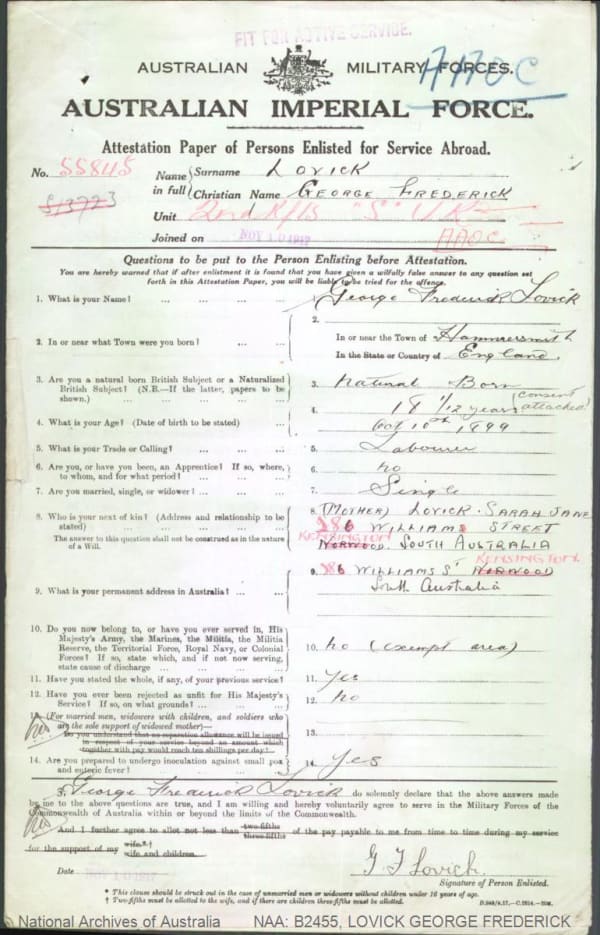 FIT FOR ACTIVE SERVICE.
AUSTRALIAN MILITARY FORCES.
AAOC
AUSTRALIAN IMPERIAL FORCE.
Attestation Paper of Persons Enlisted for Service Abroad.
No. 55845
51372
Name in full
Surname LOVICK
Christian Name GEORGE FREDERICK
Unit 2nd R/ls "S"
Joined on NOV 10 1917
AAOC
Questions to be put to the Person Enlisting before Attestation.
You are hereby warned that if after enlistment it is found that you have given a wilfully false answer to any question set
forth in this Attestation Paper, you will be liable to be tried for the offence.
1. What is your Name? ... ... ... ... George Frederick Lovick
2. In or near what Town were you born? ... ... 2. In or near the Town of Hammersmith
In the State or Country of England.
3. Are you a natural born British Subject or a Naturalized
British Subject? (N.B.—If the latter, papers to be
shown.) ... ... ... ... 3. Natural Born
4. What is your Age? (Date of birth to be stated) ... 4. 18 1/12 years (consent attached)
Oct 10th 1899
5. What is your Trade or Calling? ... ... ... 5. Labourer
6. Are you, or have you been, an Apprentice? If so, where,
to whom, and for what period? ... ... ... 6. no
7. Are you married, single, or widower? ... ... 7. Single
8. Who is your next of kin? (Address and relationship to be
stated) ... ... ... ...
The answer to this question shall not be construed as in the nature
of a Will.
8. (MOTHER) LOVICK. SARAH JANE
86 WILLIAMS STREET
KENSINGTON
NORWOOD. SOUTH AUSTRALIA
9. What is your permanent address in Australia? ... ...
KENSINGTON
9. 86 WILLIAMS ST NORWOOD
South Australia
10. Do you now belong to, or have you ever served in, His
Majesty's Army, the Marines, the Militia, the Militia
Reserve, the Territorial Force, Royal Navy, or Colonial
Forces? If so, state which, and if not now serving,
state cause of discharge ... ... ... 10. no (exempt area)
11. Have you stated the whole, if any, of your previous service? 11. Yes
12. Have you ever been rejected as unfit for His Majesty's
Service? If so, on what grounds? ... ... 12. no
13. (For married men, widowers with children, and soldiers who
are the sole support of widowed mother)—
Do you understand that no separation allowance will be issued
in respect of your service beyond an amount which
together with pay would reach ten shillings per day? 13.
14. Are you prepared to undergo inoculation against small pox
and enteric fever? ... ... ... 14. Yes
I, George Frederick Lovick do solemnly declare that the above answers made
by me to the above questions are true, and I am willing and hereby voluntarily agree to serve in the Military Forces of the
Commonwealth of Australia within or beyond the limits of the Commonwealth.
And I further agree to allot not less than two-fifths three-fifths of the pay payable to me from time to time during my service
for the support of my wife.*† wife and children.
Date NOV 10 1917
G F Lovick.
Signature of Person Enlisted.
* This clause should be struck out in the case of unmarried men or widowers without children under 16 years of age.
† Two-fifths must be allotted to the wife, and if there are children three-fifths must be allotted.
National Archives of Australia NAA: B2455, LOVICK GEORGE FREDERICK